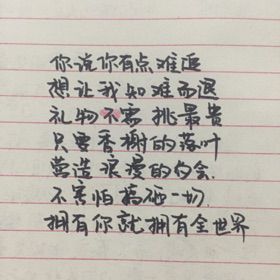 你说你有点难追
想让我知难而退
礼物不需挑最贵
只要香榭的落叶
营造浪漫的约会
不害怕搞砸一切
拥有你就拥有全世界